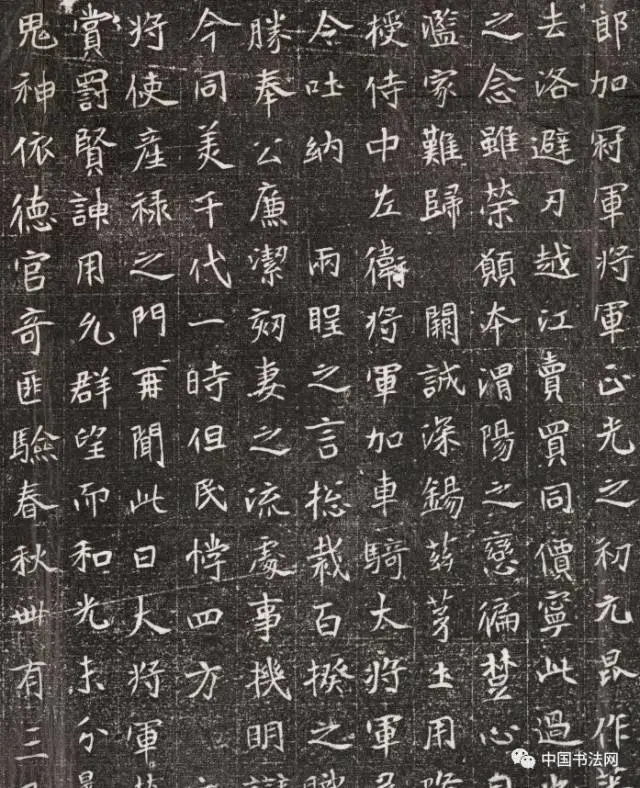 郎加冠軍將軍正光之初元昆作
去洛避刃越江賣買同價寧此過
之念雖榮願本渭陽之戀徧楚心自
濫家難歸 闕誠深錫茲茅土用
授侍中左衛將軍加車騎大將軍
令吐納 兩之言揔裁百揆之職
勝奉公廉潔妻之流處事機明
今同美千代一時但民悖四方
將使產祿之門再聞此日大將軍
賞罰賢用允群望而和光未分
鬼神依德官奇匪驗春秋卌有三
中国书法网